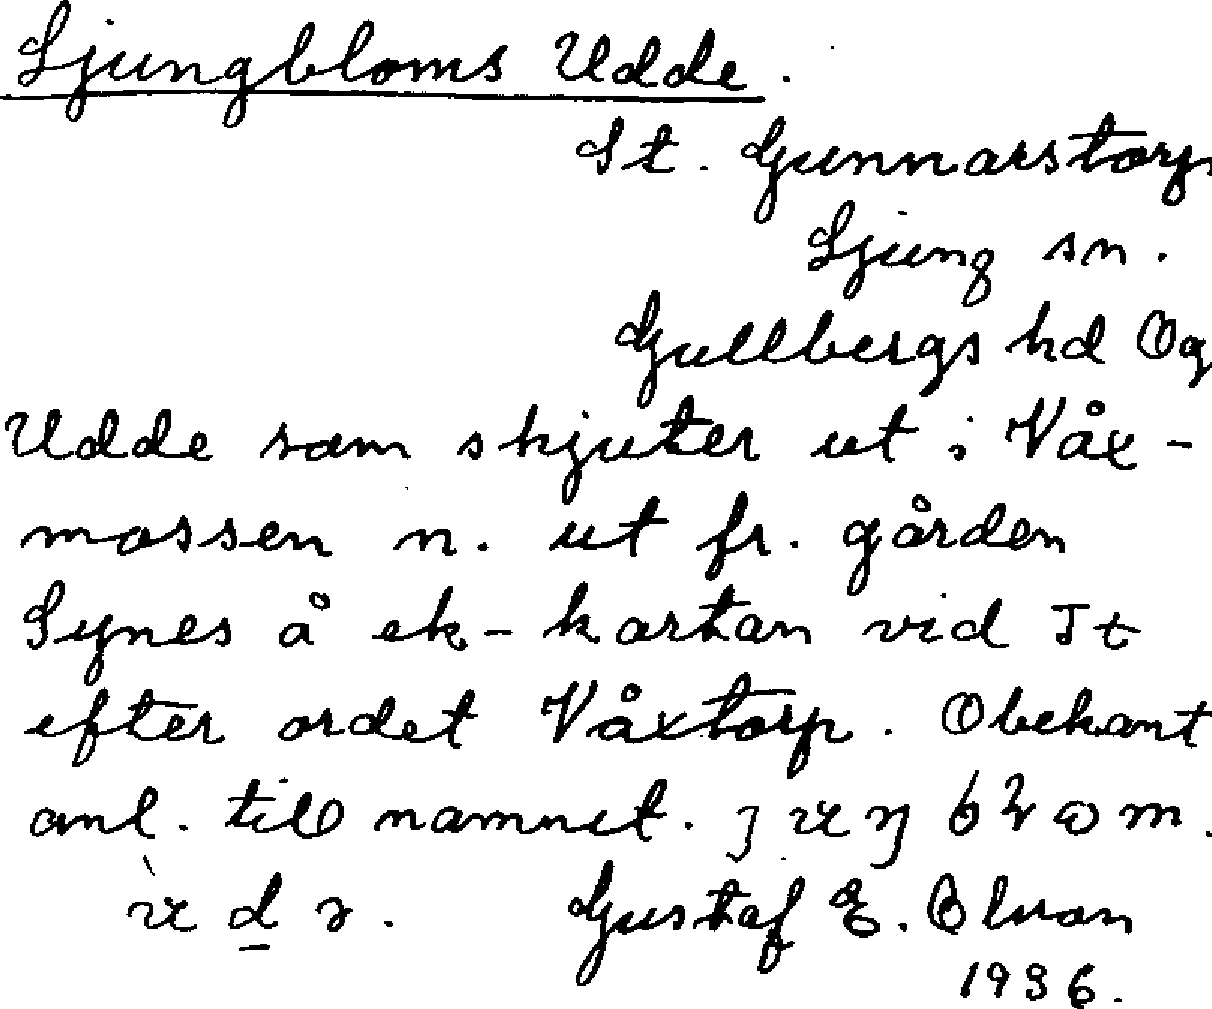 Ljungbloms Udde.
St. Gunnarstorp
Ljung sn.
Gullbergs hd Og
Udde som skjuter ut i Våx-
mossen n. ut fr. gården
Synes å ek-kartan vid St
efter ordet Våxtorp. Obekant
anl. till namnet.
Gustaf E. Olson
1936.